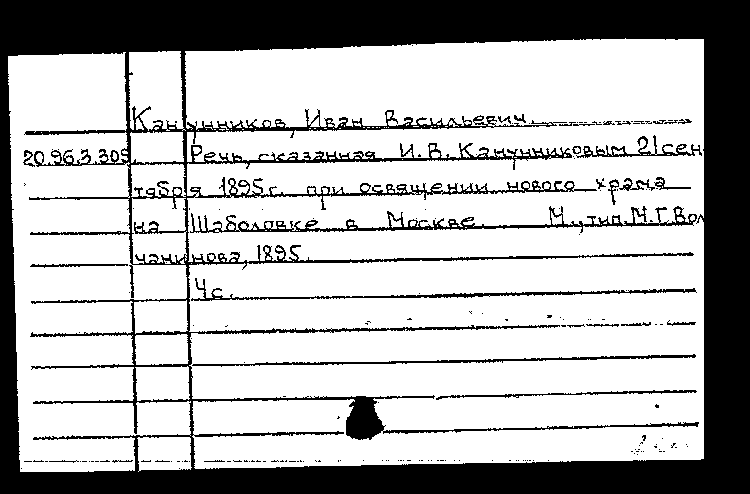 Канунников, Иван Васильевич.
20.96.3.305. Речь, сказанная И.В. Канунниковым 21 сен-
тября 1895 г. при освящении нового храма
на Шаболовке в Москве. М., тип. М.Г. Вол
чанинова, 1895.
4 с.